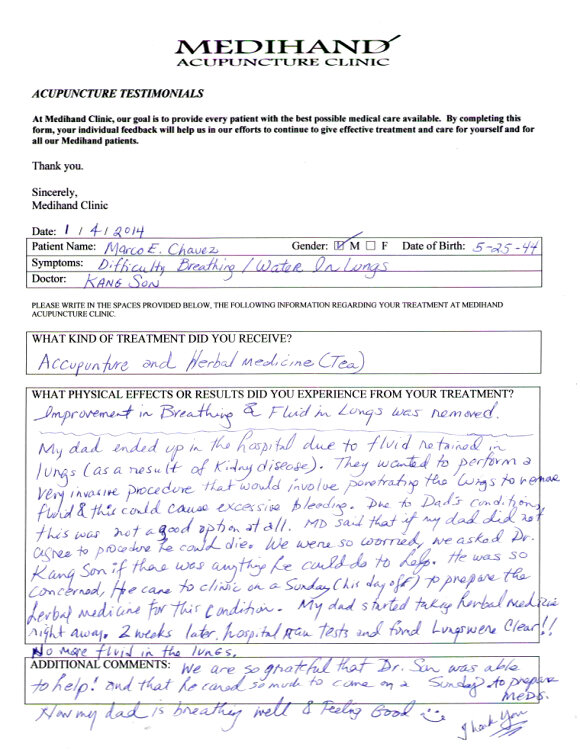 MEDIHAND
ACUPUNCTURE CLINIC
ACUPUNCTURE TESTIMONIALS
At Medihand Clinic, our goal is to provide every patient with the best possible medical care available. By completing this
form, your individual feedback will help us in our efforts to continue to give effective treatment and care for yourself and for
all our Medihand patients.
Thank you.
Sincerely,
Medihand Clinic
Date: 1 / 4 / 2014
Patient Name: Marco E. Chavez Gender: ☑ M ☐ F Date of Birth: 5-25-44
Symptoms: Difficulty Breathing / Water In Lungs
Doctor: KANG SON
PLEASE WRITE IN THE SPACES PROVIDED BELOW, THE FOLLOWING INFORMATION REGARDING YOUR TREATMENT AT MEDIHAND
ACUPUNCTURE CLINIC.
WHAT KIND OF TREATMENT DID YOU RECEIVE?
Accupunture and Herbal Medicine (Tea)
WHAT PHYSICAL EFFECTS OR RESULTS DID YOU EXPERIENCE FROM YOUR TREATMENT?
Improvement in Breathing & Fluid in Lungs was removed.
My dad ended up in the hospital due to fluid retained in
lungs (as a result of Kidny disease). They wanted to perform a
very invasive procedure that would involve penetrating the lungs to remove
fluid & this could cause excessive bleeding. Due to Dad's condition,
this was not a good option at all. MD said that if my dad did not
agree to procedure he could die. We were so worried, we asked Dr.
Kang Son if there was anything he could do to help. He was so
concerned, He came to clinic on a Sunday (his day off) to prepare the
herbal medicine for this condition. My dad started taking herbal medicine
right away. 2 weeks later, hospital ran tests and found Lungs were Clear!!
No more fluid in the lungs.
ADDITIONAL COMMENTS: We are so grateful that Dr. Son was able
to help! and that he cared so much to come on a Sunday to prepare
meds.
Now my dad is breathing well & Feeling Good
Thank You